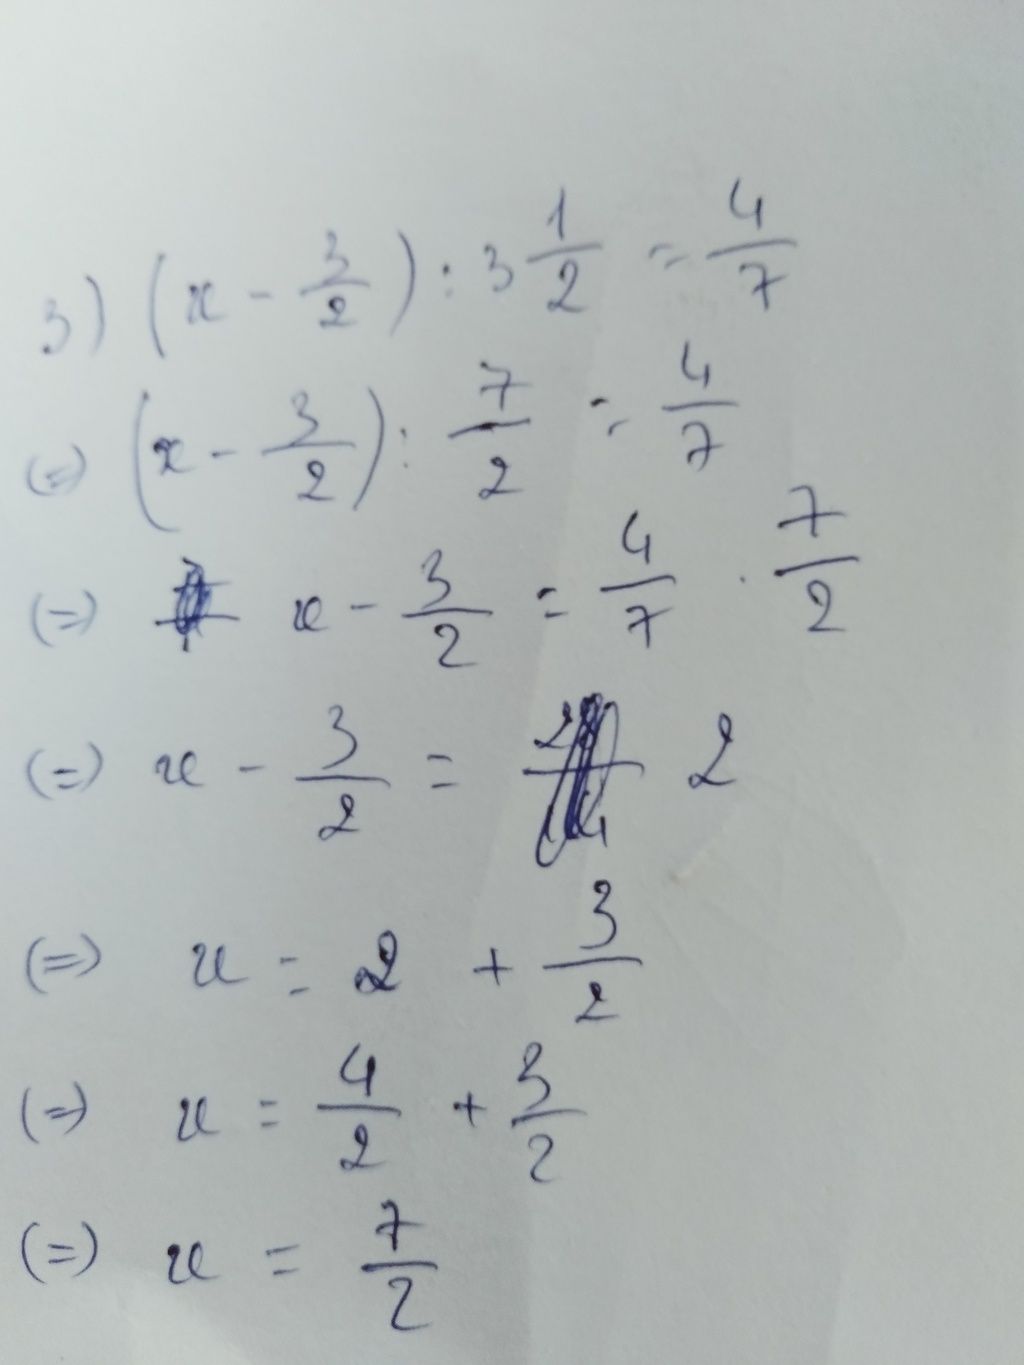 3) (x - 3/2) : 3 1/2 = 4/7
(=) (x - 3/2) : 7/2 = 4/7
(=) x - 3/2 = 4/7 . 7/2
(=) x - 3/2 = 2
(=) x = 2 + 3/2
(=) x = 4/2 + 3/2
(=) x = 7/2